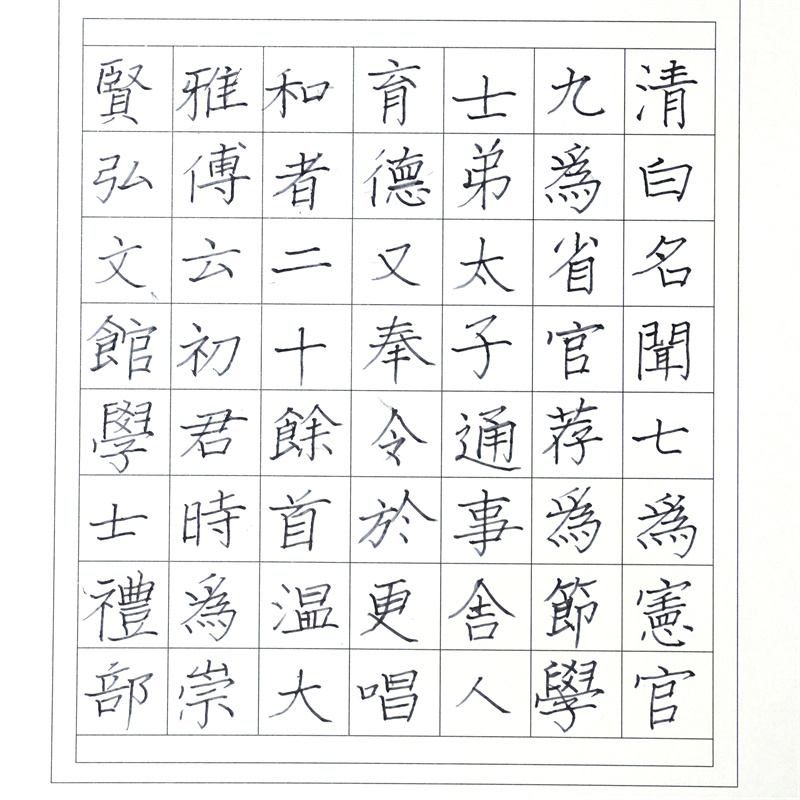 清白名聞七為憲官
九為省官荐為節學
士弟太子通事舎人
育德又奉令於更唱
和者二十餘首温大
雅傅云初君時為崇
賢弘文館學士禮部